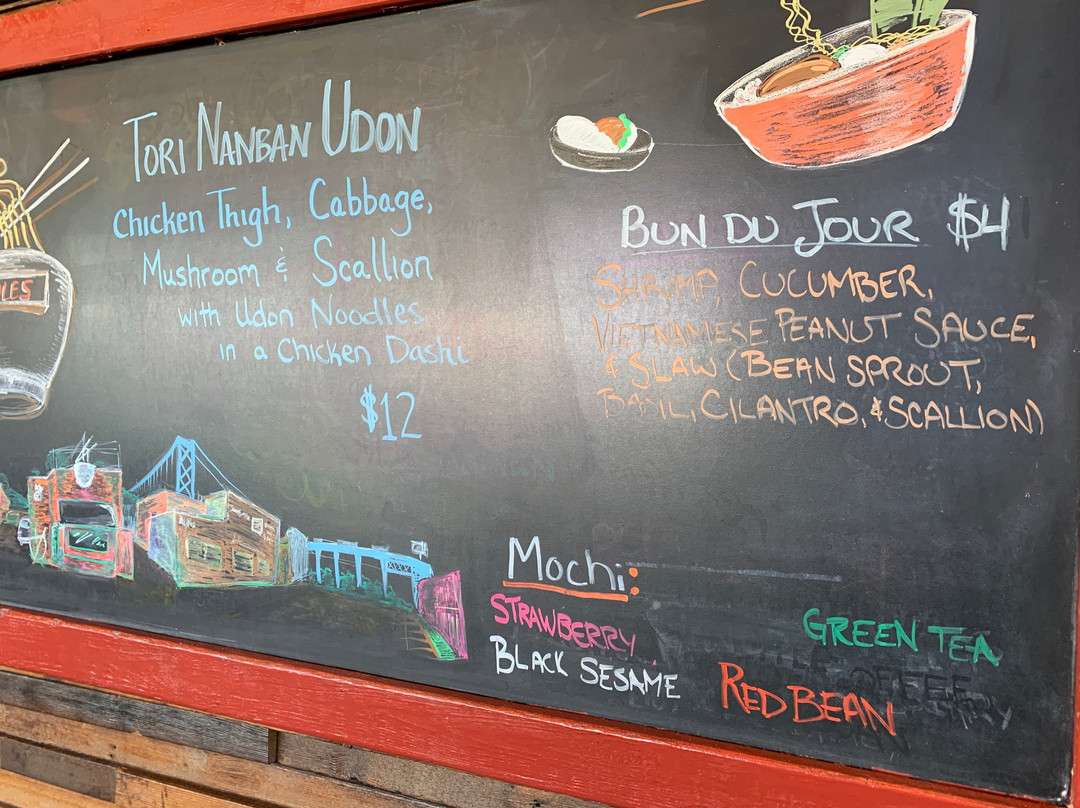 TORI NANBAN UDON
Chicken Thigh, Cabbage,
Mushroom & Scallion
with Udon Noodles
in a Chicken Dashi
$12
BUN DU JOUR $4
SHRIMP, CUCUMBER,
VIETNAMESE PEANUT SAUCE,
& SLAW (BEAN SPROUT,
BASIL, CILANTRO, & SCALLION)
Mochi:
STRAWBERRY
BLACK SESAME
GREEN TEA
RED BEAN